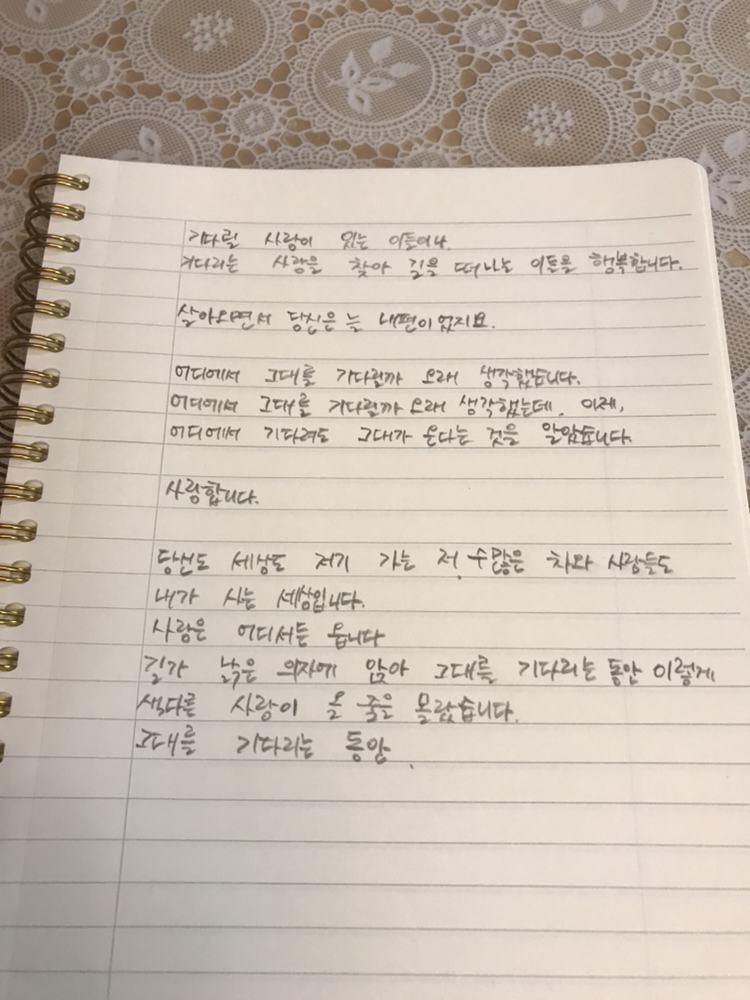 기다릴 사랑이 있는 이들이나
기다리는 사랑을 찾아 길을 떠나는 이들을 행복합니다.
살아오면서 당신은 늘 내편이었지요.
어디에서 그대를 기다릴까 오래 생각했습니다.
어디에서 그대를 기다릴까 오래 생각했는데, 이제,
어디에서 기다려도 그대가 온다는 것을 알았습니다.
사랑합니다.
당신도 세상도 저기 가는 저 수많은 차와 사람들도
내가 사는 세상입니다.
사랑은 어디서든 옵니다
길가 낡은 의자에 앉아 그대를 기다리는 동안 이렇게
색다른 사랑이 올 줄은 몰랐습니다.
그대를 기다리는 동안.